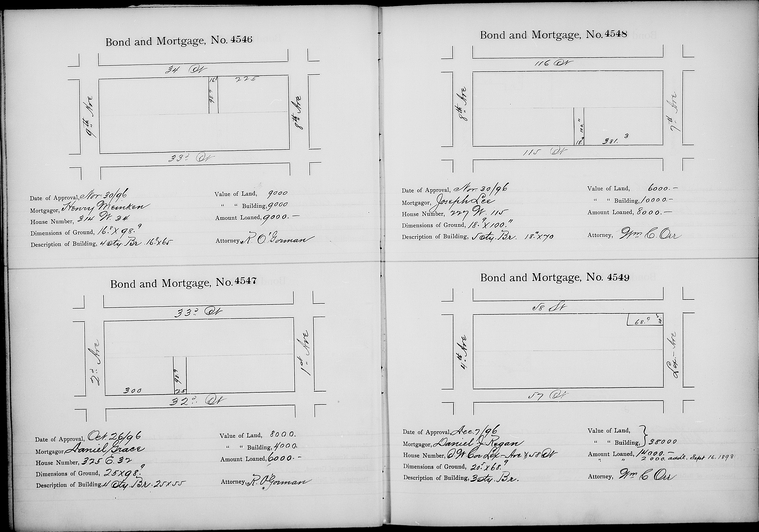 Bond and Mortgage, No. 4546
34 St
225
9th Ave
8th Ave
33d St
Date of Approval, Nov 30/96
Mortgagor, Henry Meinken
House Number, 314 W 34
Dimensions of Ground, 16.8 x 98.9
Description of Building, 4 sty Br. 16.8 x 65
Value of Land, 9000
" " Building, 9000
Amount Loaned, 9000.—
Attorney, R O'Gorman
Bond and Mortgage, No. 4547
33d St
2d Ave
1st Ave
300
25
32d St
Date of Approval, Oct 26/96
Mortgagor, Daniel Grace
House Number, 325 E 32
Dimensions of Ground, 25 x 98.9
Description of Building, 4 sty Br. 25 x 55
Value of Land, 8000.
" " Building, 4000.
Amount Loaned, 6000.—
Attorney, R O'Gorman
Bond and Mortgage, No. 4548
116 St
8th Ave
7th Ave
115 St
Date of Approval, Nov 30/96
Mortgagor, Joseph Lee
House Number, 227 W. 115
Dimensions of Ground, 18." x 100."
Description of Building, 5 sty. Br. 18." x 70
Value of Land, 6000.—
" " Building, 10000.—
Amount Loaned, 8000.—
Attorney, Wm C. Orr
Bond and Mortgage, No. 4549
58 St
4th Ave
Lex-Ave
57 St
Date of Approval, Dec 7/96
Mortgagor, Daniel J. Regan
House Number, S W Cor Lex-Ave & 58 St
Dimensions of Ground, 20." x 68."
Description of Building, 3 sty Br.
Value of Land,
" " Building, 38000
Amount Loaned, 14000.—
" " 2000 addl. Sept 16. 1898
Attorney, Wm C Orr